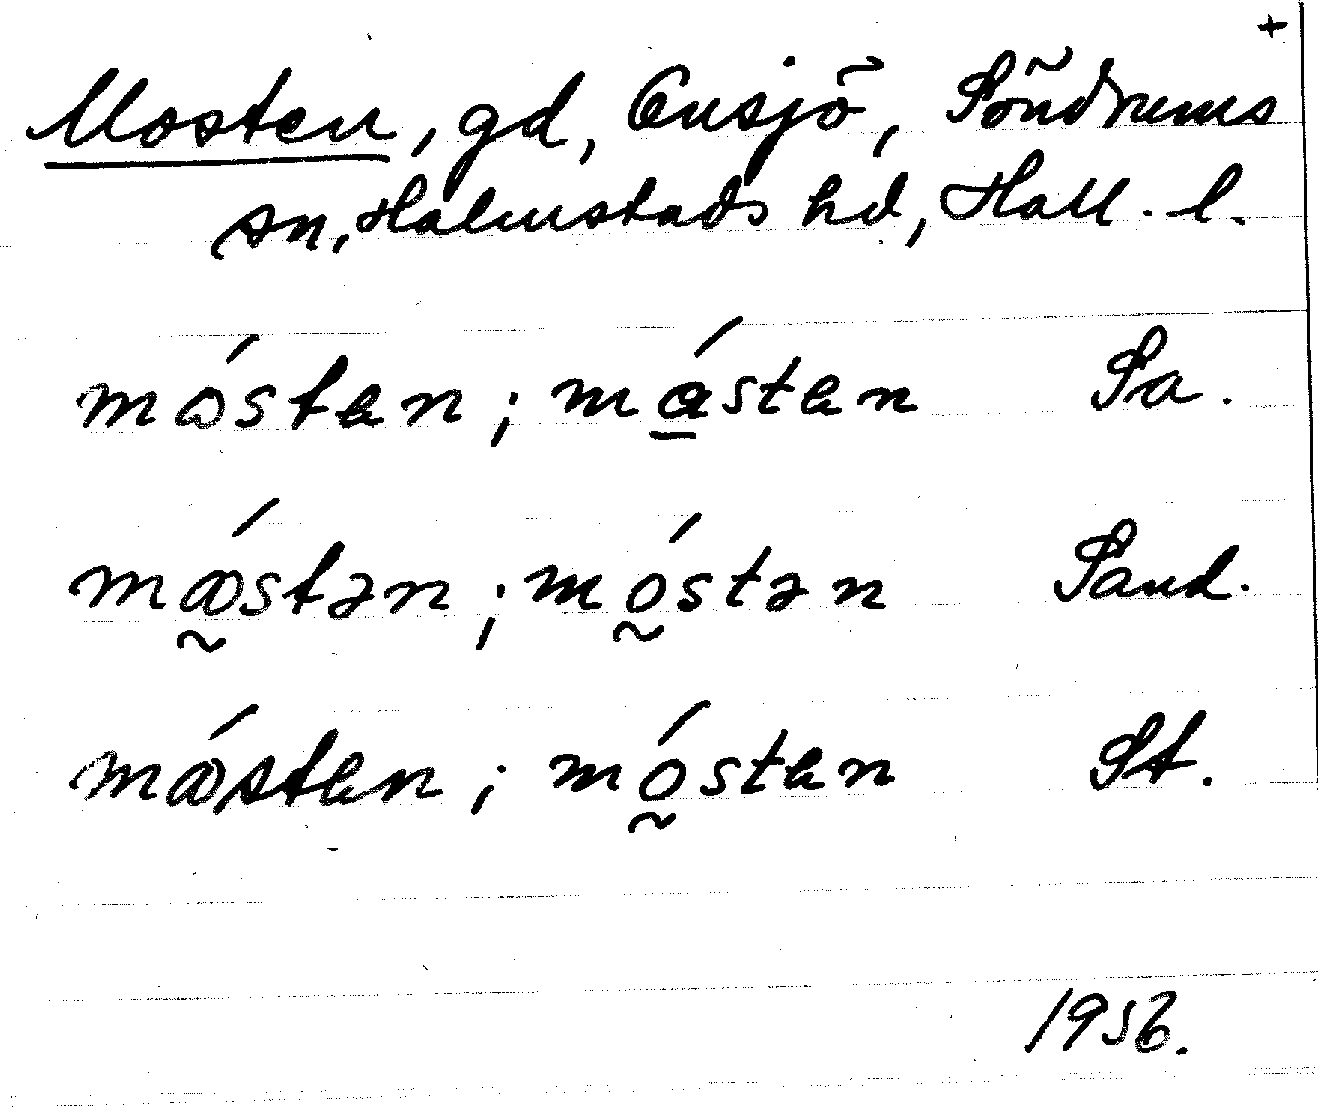 +
Mosten, gd, Ensjö, Söndrums
sn, Halmstads hd, Hall. l.
mósten; másten Sa.
mǿstən; móstən Sand.
mǿsten; mósten St.
1956.